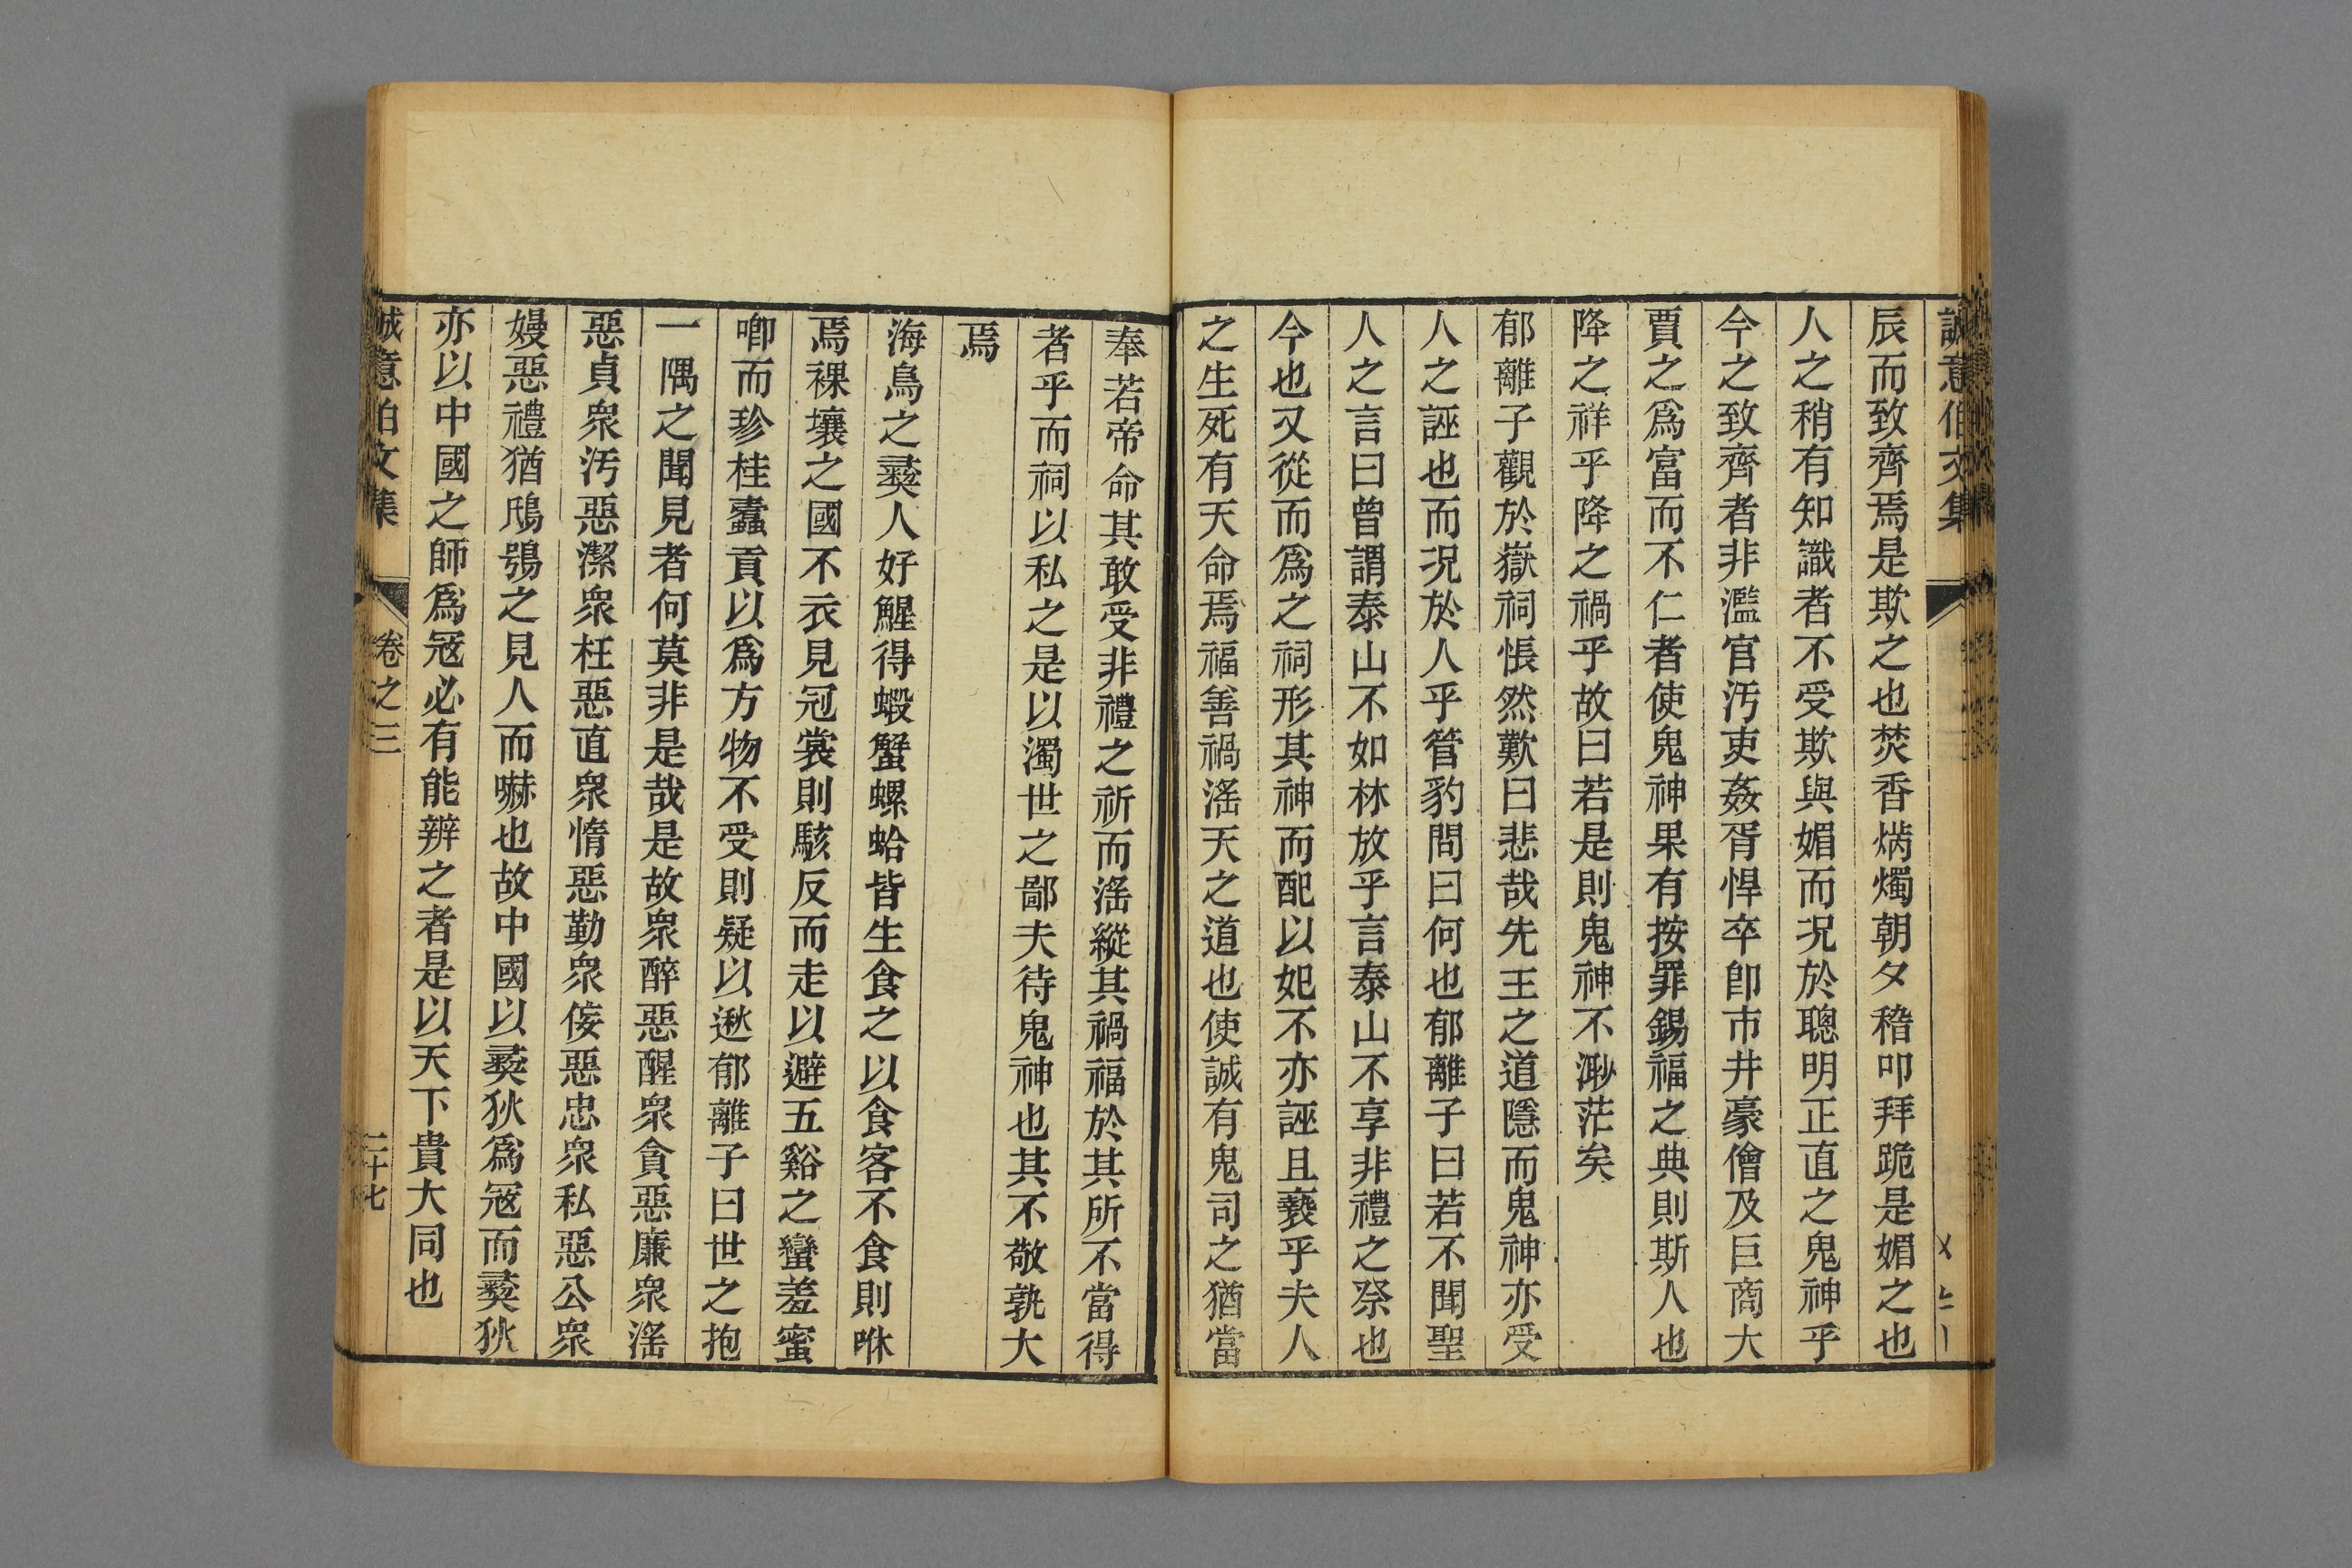 誠意伯文集
辰而致齊焉是欺之也焚香焫燭朝夕稽叩拜跪是媚之也
人之稍有知識者不受欺與媚而况於聰明正直之鬼神乎
今之致齊者非濫官汚吏姦胥悍卒卽市井豪儈及巨商大
賈之爲富而不仁者使鬼神果有按罪錫福之典則斯人也
降之祥乎降之禍乎故曰若是則鬼神不渺茫矣
郁離子觀於嶽祠悵然歎曰悲哉先王之道隱而鬼神亦受
人之誣也而况於人乎管豹問曰何也郁離子曰若不聞聖
人之言曰曾謂泰山不如林放乎言泰山不享非禮之祭也
今也又從而爲之祠形其神而配以妃不亦誣且褻乎夫人
之生死有天命焉福善禍滛天之道也使誠有鬼司之猶當
奉若帝命其敢受非禮之祈而滛縱其禍福於其所不當得
者乎而祠以私之是以濁世之鄙夫待鬼神也其不敬孰大
焉
海島之彛人好鯹得蝦蟹螺蛤皆生食之以食客不食則咻
焉裸壤之國不衣見冠裳則駭反而走以避五谿之蠻羞蜜
喞而珍桂蠹貢以爲方物不受則疑以逖郁離子曰世之抱
一隅之聞見者何莫非是哉是故衆醉惡醒衆貪惡廉衆滛
惡貞衆汚惡潔衆枉惡直衆惰惡勤衆佞惡忠衆私惡公衆
嫚惡禮猶鴟鴞之見人而嚇也故中國以彛狄爲寇而彛狄
亦以中國之師爲寇必有能辨之者是以天下貴大同也
誠意伯文集
卷之三
二十七